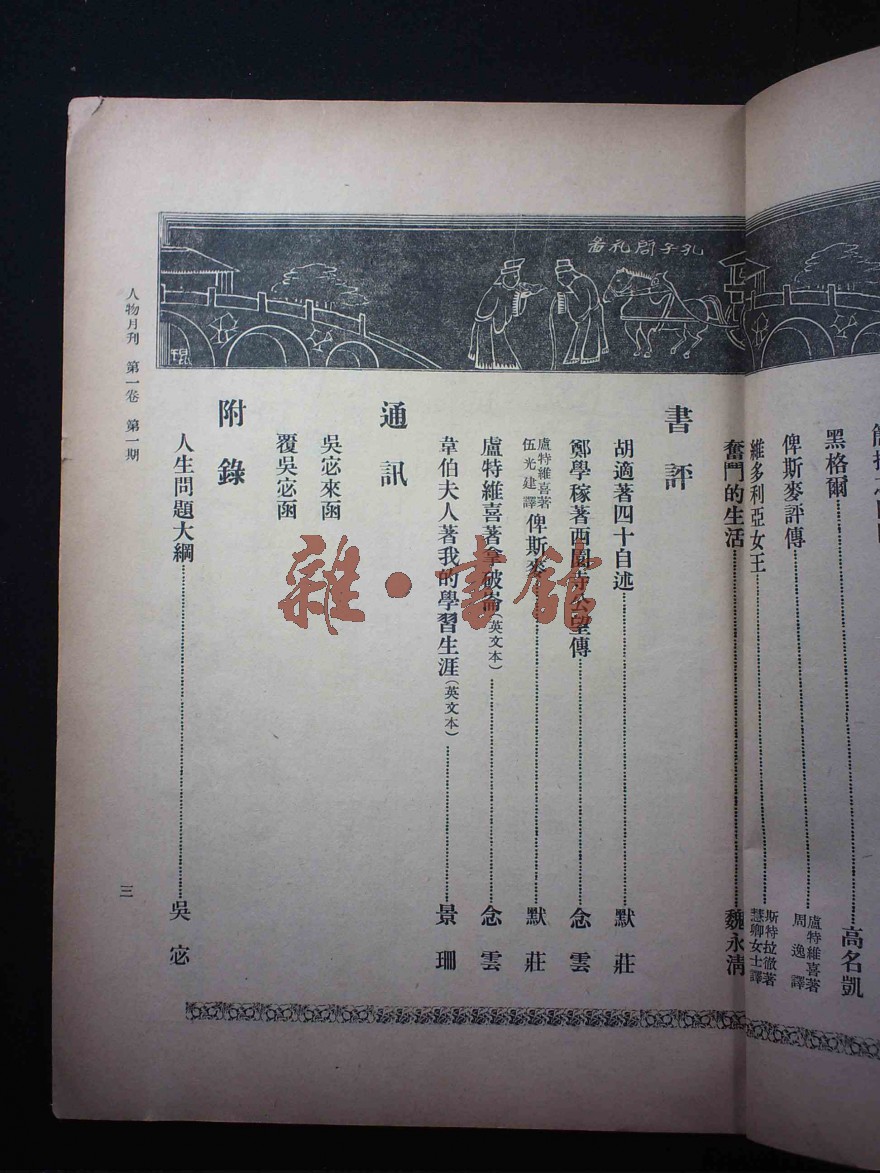 孔子問礼者
黑格爾……高名凱
俾斯麥評傳……盧特維喜著 周逸譯
維多利亞女王……斯特拉徹著 慧卿女士譯
奮鬥的生活……魏永清
書評
胡適著四十自述……默莊
鄭學稼著西園寺公望傳……念雲
盧特維喜著 伍光建譯 俾斯麥……默莊
盧特維喜著拿破崙(英文本)……念雲
韋伯夫人著我的學習生涯(英文本)……景珊
通訊
吳宓來函
覆吳宓函
附錄
人生問題大綱……吳宓
人物月刊 第一卷 第一期
三
雜·書館